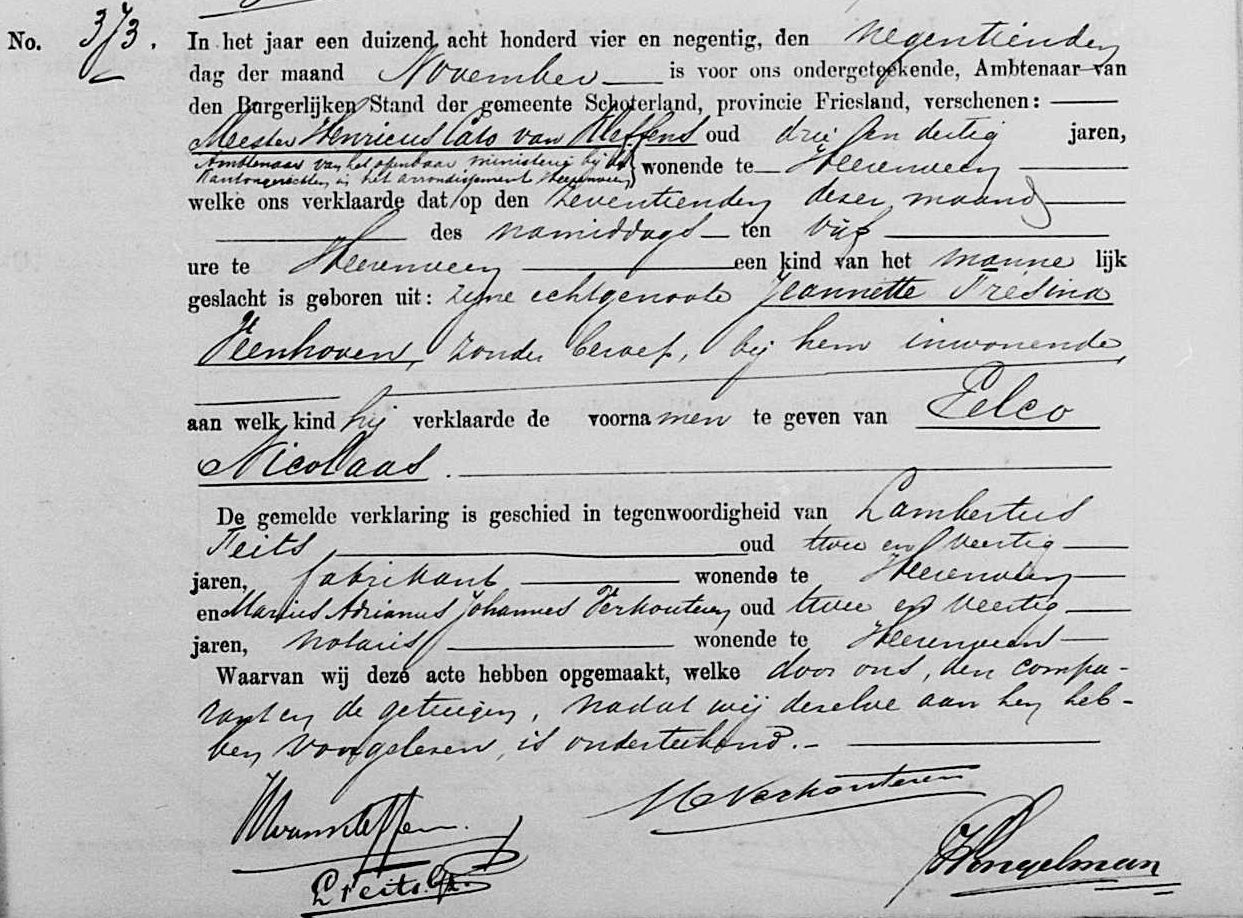 No. 373. In het jaar een duizend acht honderd vier en negentig, den negentienden
dag der maand November is voor ons ondergeteekende, Ambtenaar van
den Burgerlijken Stand der gemeente Schoterland, provincie Friesland, verschenen:
Meester Henricus Cato van Kleffens oud drie en dertig jaren,
Ambtenaar van het openbaar ministerie bij de
Kantongerechten in het arrondissement Heerenveen wonende te Heerenveen
welke ons verklaarde dat op den zeventienden dezer maand
des namiddags ten vijf
ure te Heerenveen een kind van het manne lijk
geslacht is geboren uit: zijne echtgenoote Jeannette Fresina
Veenhoven, zonder beroep, bij hem inwonende,
aan welk kind hij verklaarde de voornamen te geven van Eelco
Nicolaas.
De gemelde verklaring is geschied in tegenwoordigheid van Lambertus
Feits, oud twee en veertig
jaren, fabrikant wonende te Heerenveen
en Marius Adrianus Johannes Verhouteren oud twee en veertig
jaren, notaris wonende te Heerenveen
Waarvan wij deze acte hebben opgemaakt, welke door ons, den compa-
rant en de getuigen, nadat wij dezelve aan hen heb-
ben voorgelezen, is onderteekend.-
HCvanKleffens.
MVerhouteren
L Feits
Engelman